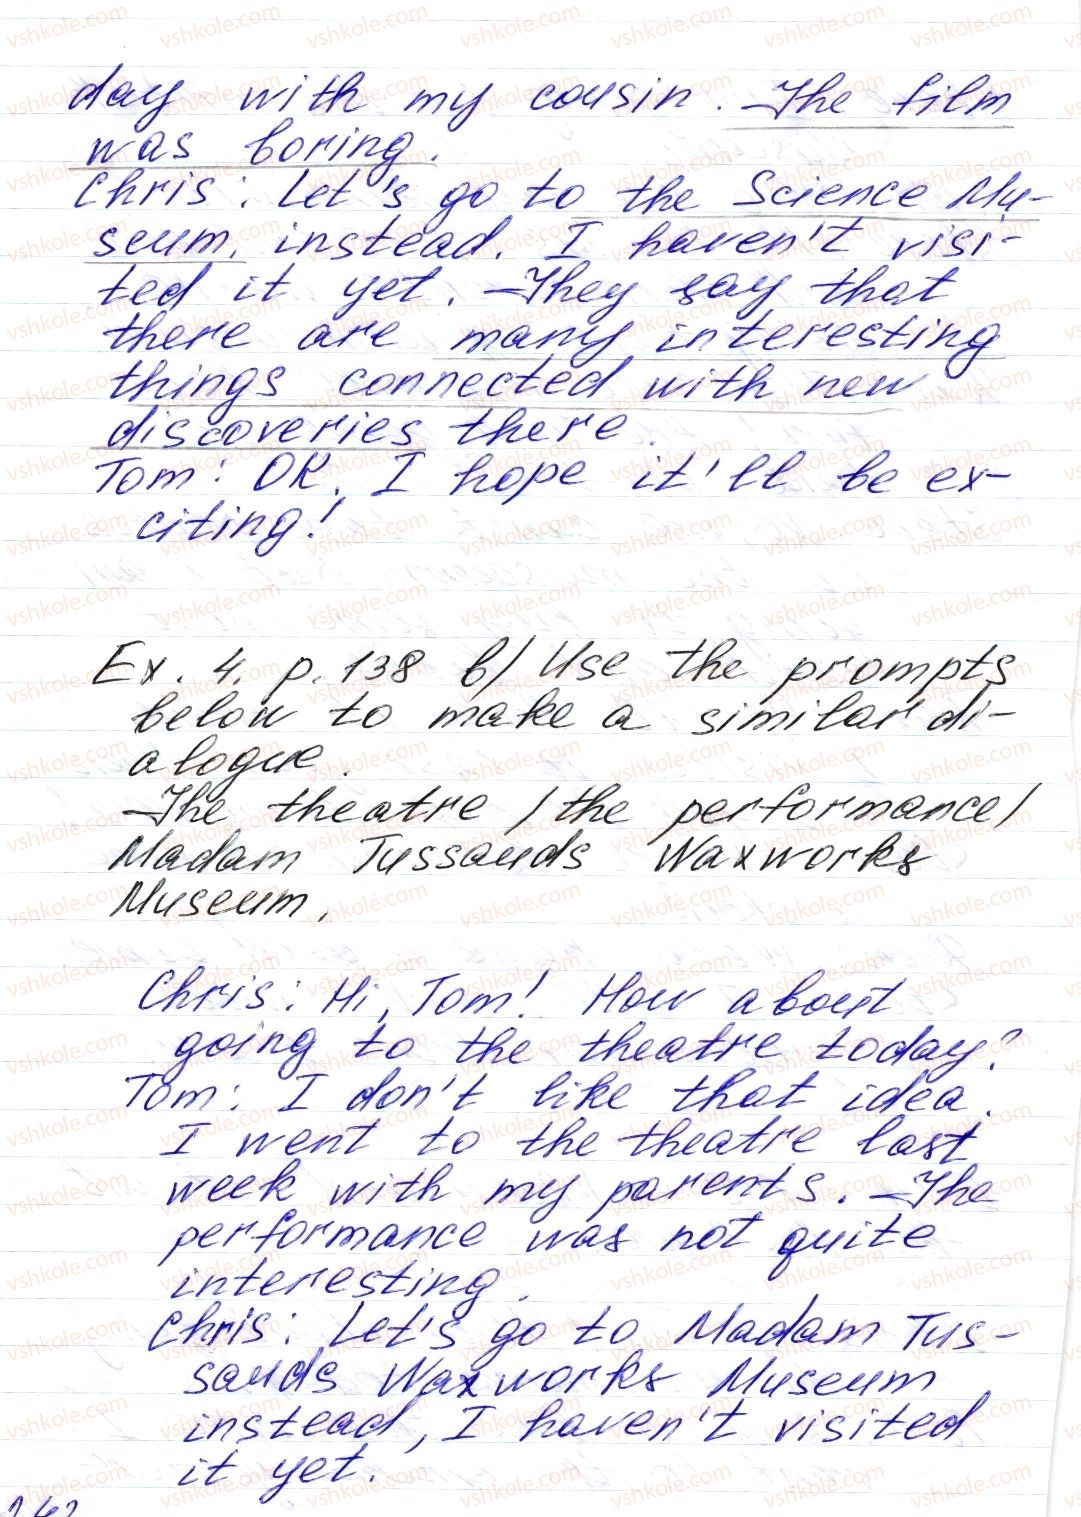 day with my cousin. The film
was boring.
Chris: Let's go to the Science Mu-
seum, instead. I haven't visi-
ted it yet. They say that
there are many interesting
things connected with new
discoveries there.
Tom: OK. I hope it'll be ex-
citing!
Ex. 4. p. 138 b) Use the prompts
below to make a similar di-
alogue.
The theatre / the performance /
Madam Tussauds Waxworks
Museum.
Chris: Hi, Tom! How about
going to the theatre today?
Tom: I don't like that idea.
I went to the theatre last
week with my parents. The
performance was not quite
interesting.
Chris: Let's go to Madam Tus-
sauds Waxworks Museum
instead, I haven't visited
it yet.